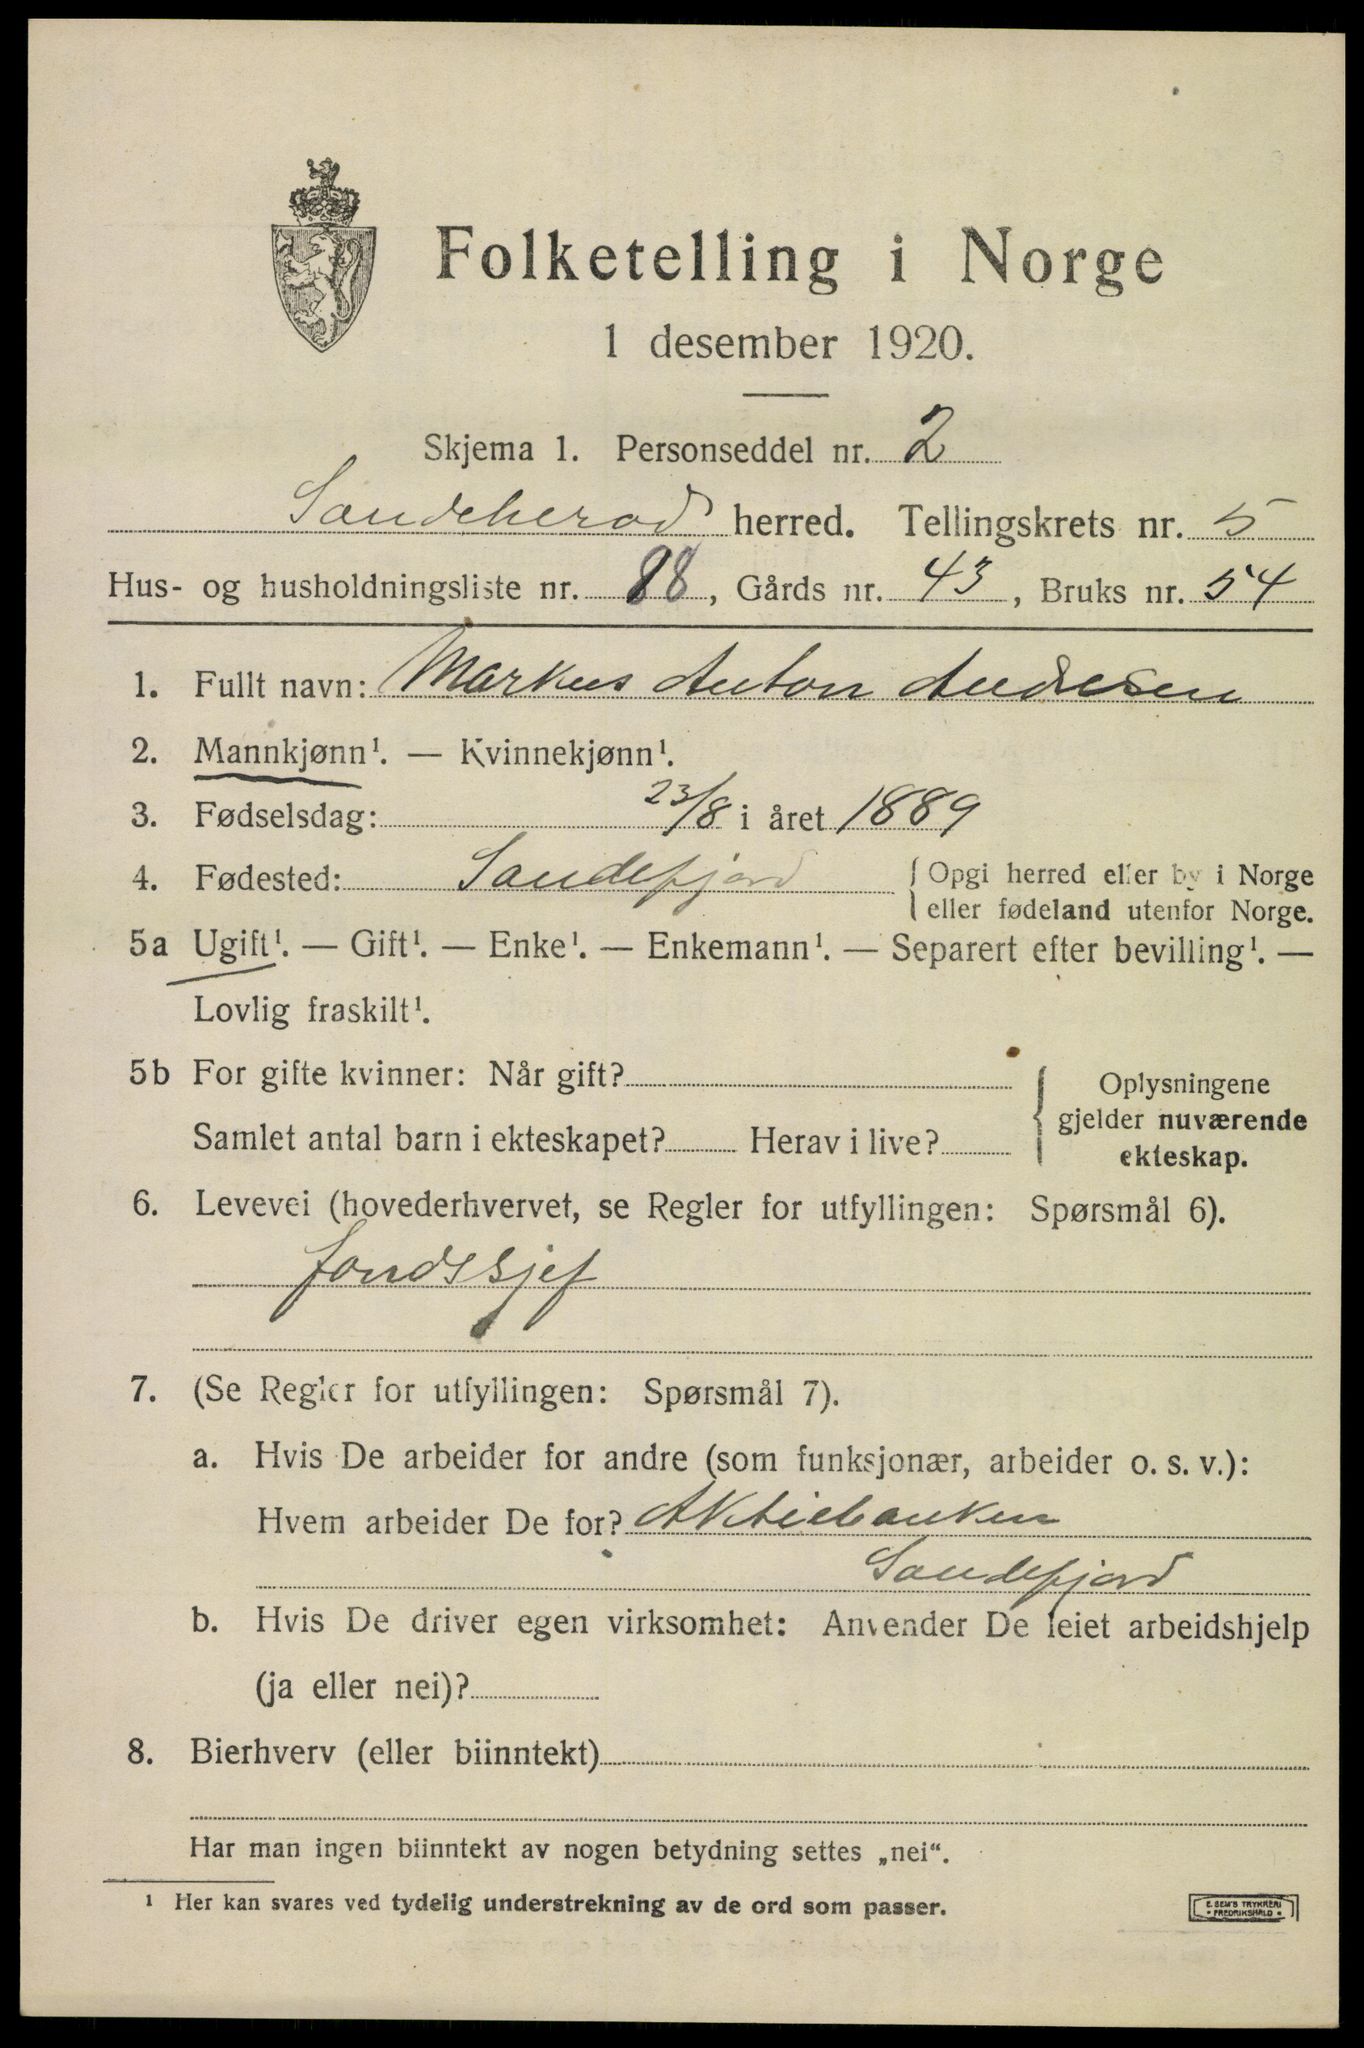 Folketelling i Norge
1 desember 1920.
Skjema 1. Personseddel nr. 2
Sandeherad herred. Tellingskrets nr. 5
Hus- og husholdningsliste nr. 88, Gårds nr. 43, Bruks nr. 54
1. Fullt navn: Markus Anton Andresen
2. Mannkjønn¹. — Kvinnekjønn¹.
3. Fødselsdag: 23/8 i året 1889
4. Fødested: Sandefjord { Opgi herred eller by i Norge
eller fødeland utenfor Norge.
5a Ugift¹. — Gift¹. — Enke¹. — Enkemann¹. — Separert efter bevilling¹. —
Lovlig fraskilt¹.
5b For gifte kvinner: Når gift?
Samlet antal barn i ekteskapet? Herav i live?
{ Oplysningene
gjelder nuværende
ekteskap.
6. Levevei (hovederhvervet, se Regler for utfyllingen: Spørsmål 6).
fondssjef
7. (Se Regler for utfyllingen: Spørsmål 7).
a. Hvis De arbeider for andre (som funksjonær, arbeider o. s. v.):
Hvem arbeider De for? Aktiebanken
Sandefjord
b. Hvis De driver egen virksomhet: Anvender De leiet arbeidshjelp
(ja eller nei)?
8. Bierhverv (eller biinntekt)
Har man ingen biinntekt av nogen betydning settes „nei“.
¹ Her kan svares ved tydelig understrekning av de ord som passer.
E. SEM'S TRYKKERI
• FREDRIKSHALD •